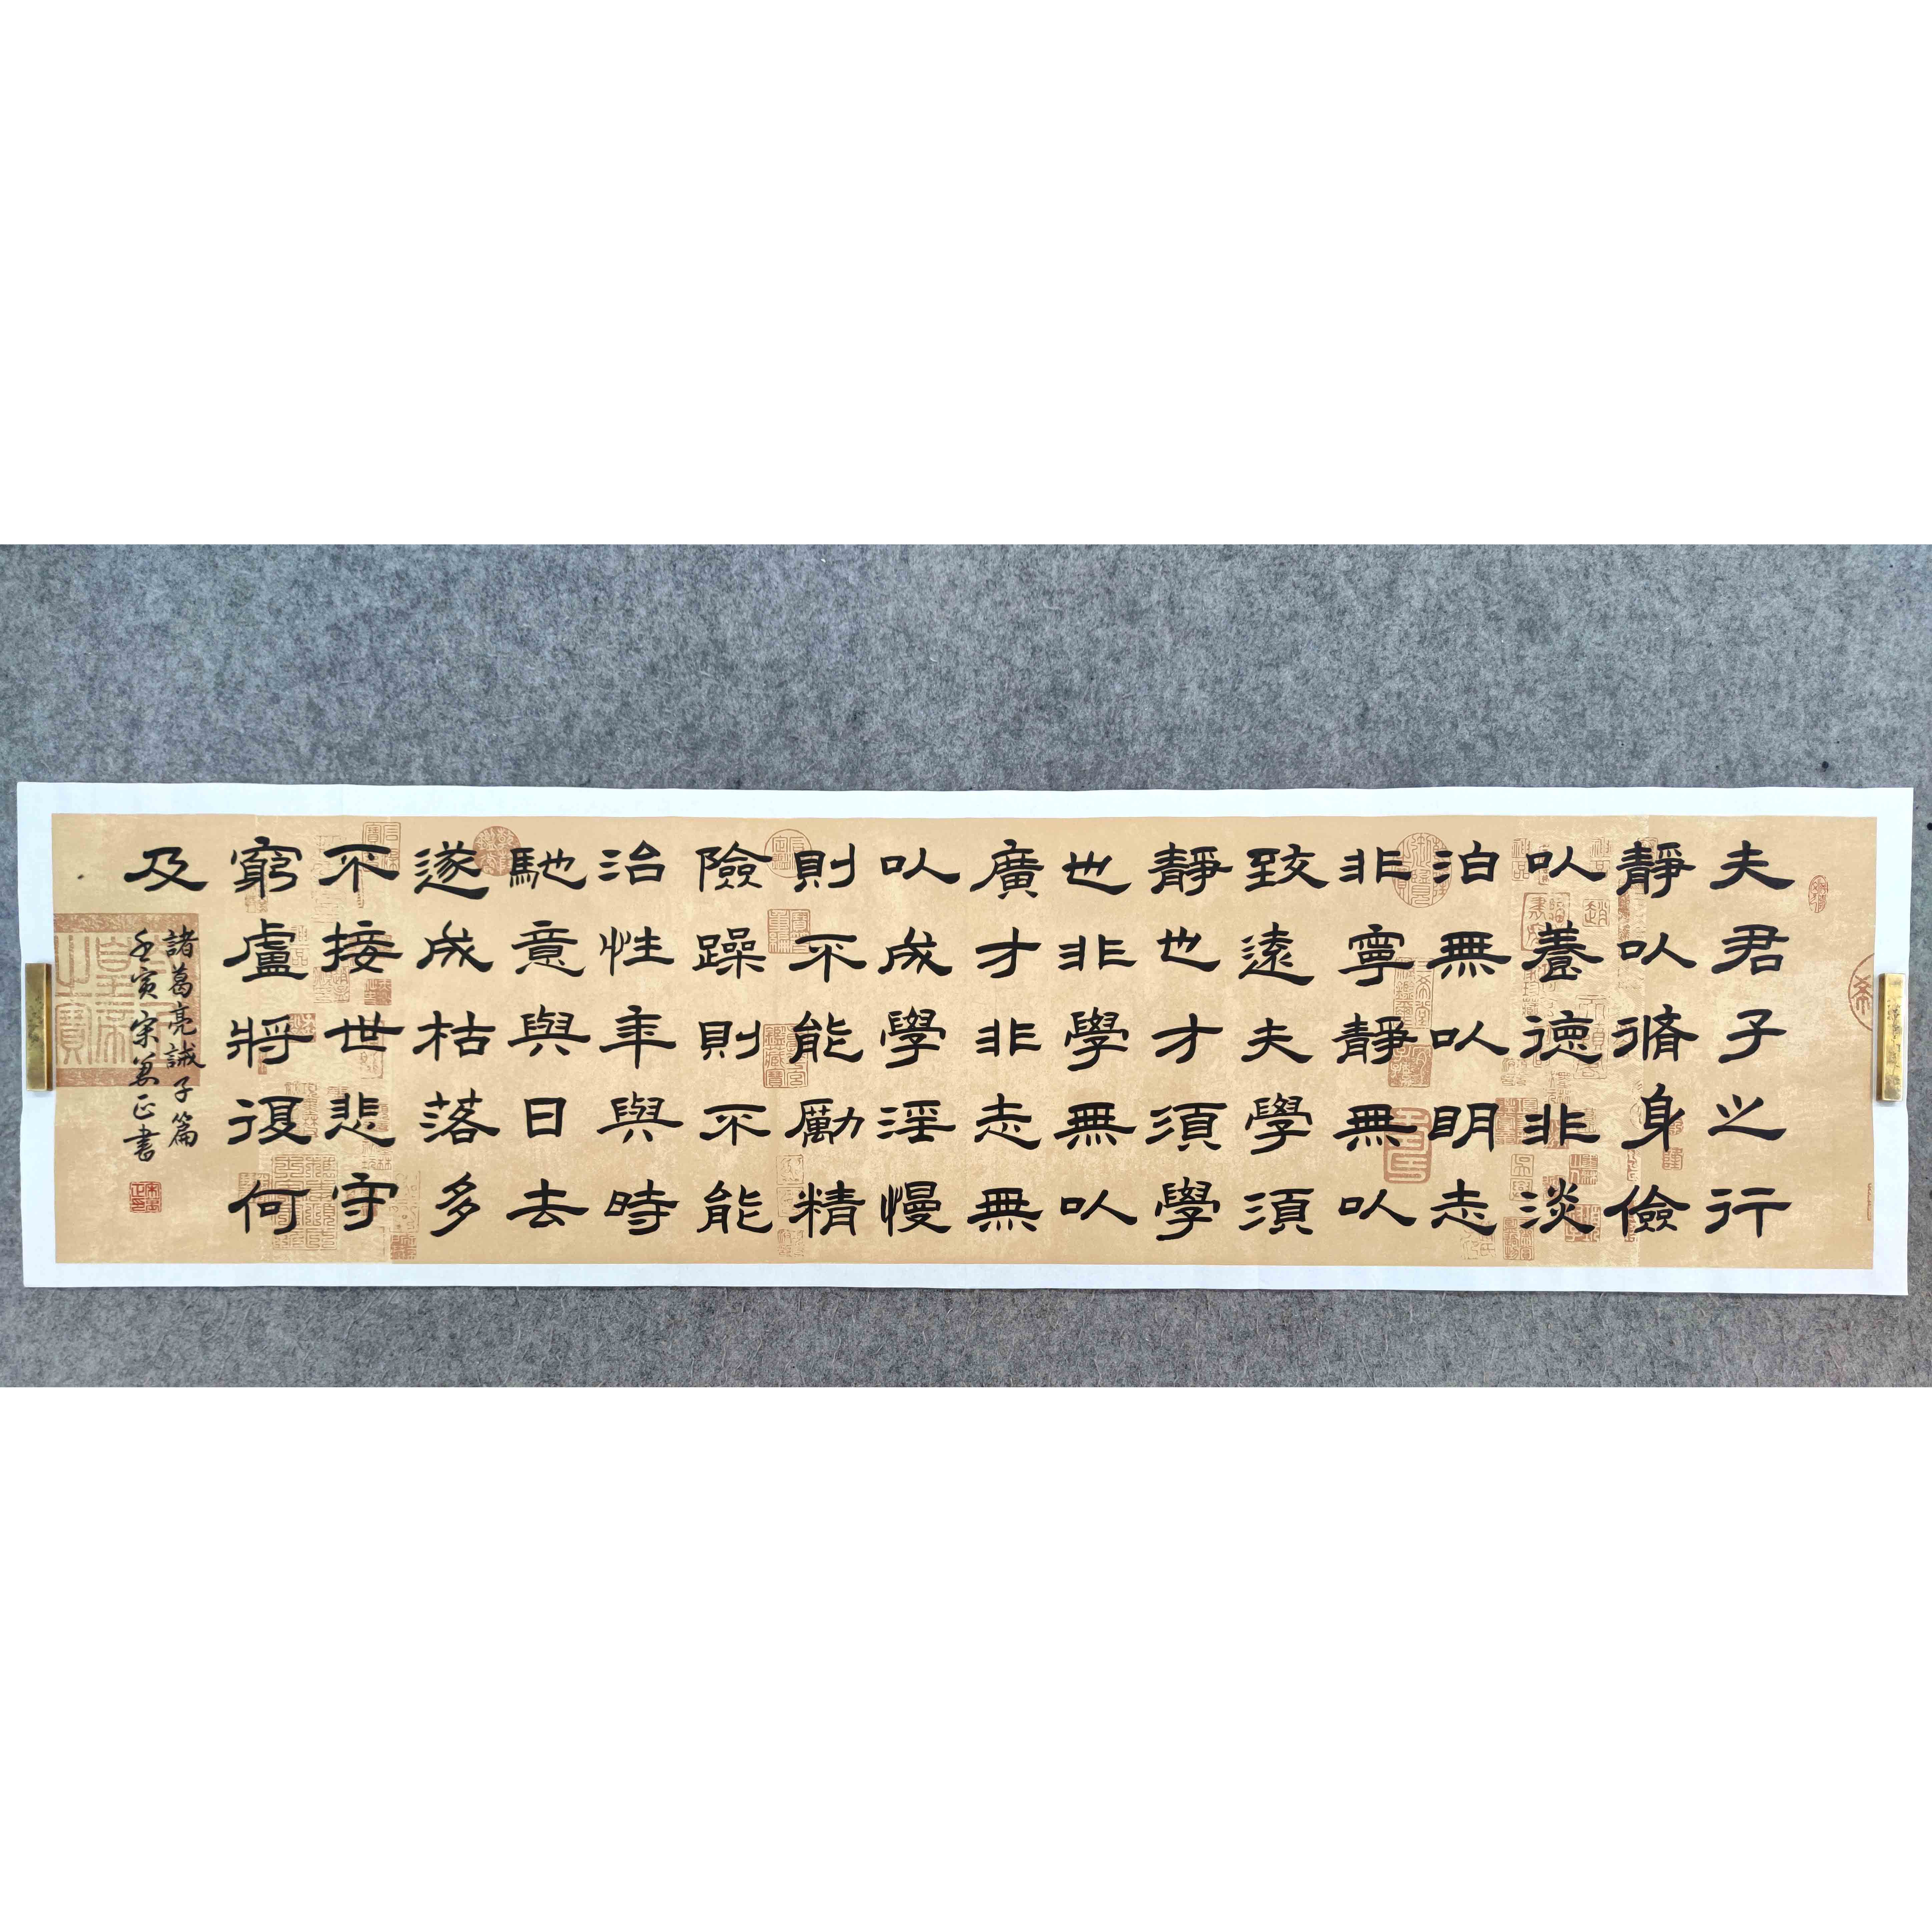 夫君子之行
靜以脩身儉
以養德非淡
泊無以明志
非寧靜無以
致遠夫學須
靜也才須學
也非學無以
廣才非志無
以成學淫慢
則不能勵精
險躁則不能
治性年與時
馳意與日去
遂成枯落多
不接世悲守
窮盧將復何
及
諸葛亮誡子篇
壬寅宋萬正書